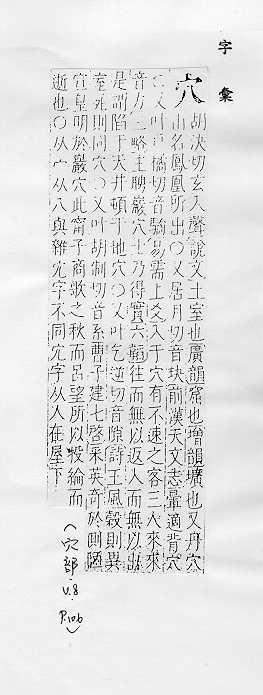 字彙
穴 胡決切玄入聲說文土室也廣韻窟也增韻壙也又丹穴
山名鳳凰所出〇又居月切音玦前漢天文志暈適背穴
〇又叶戶橘切音驈易需上爻入于穴有不速之客三人來
音方一略主聘巖穴士乃得實六韜往而無以返入而無以出
是謂陷于天井頓于地穴〇又叶乞逆切音隙詩王風穀則異
室死則同穴〇又叶胡制切音系曹子建七啓采英奇於側陋
宣皇明於巖穴此甯子商歌之秋而呂望所以投綸而
逝也〇从宀从八與雜宂字不同宂字从人在屋下
(穴部
V.8
P.106)